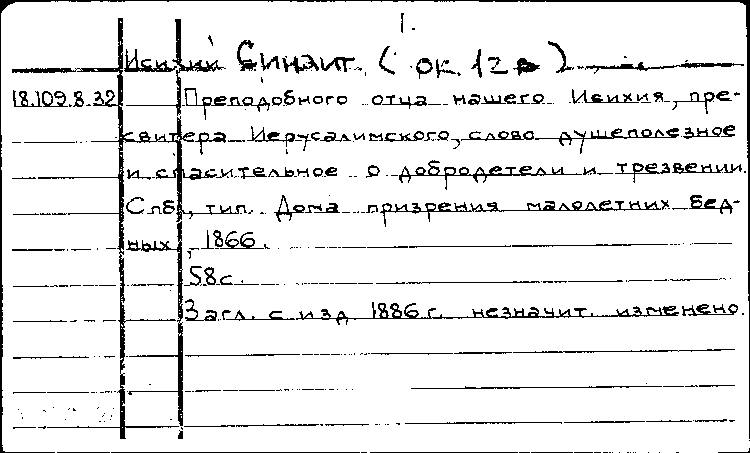 1.
Исихий Синаит. (ок. 12 в)
18.109.8.32 Преподобного отца нашего Исихия, пре-
свитера Иерусалимского, слово душеполезное
и спасительное о добродетели и трезвении.
Спб., тип. Дома призрения малолетних бед-
ных, 1866.
58с.
Загл. с изд 1886 г. незначит. изменено.